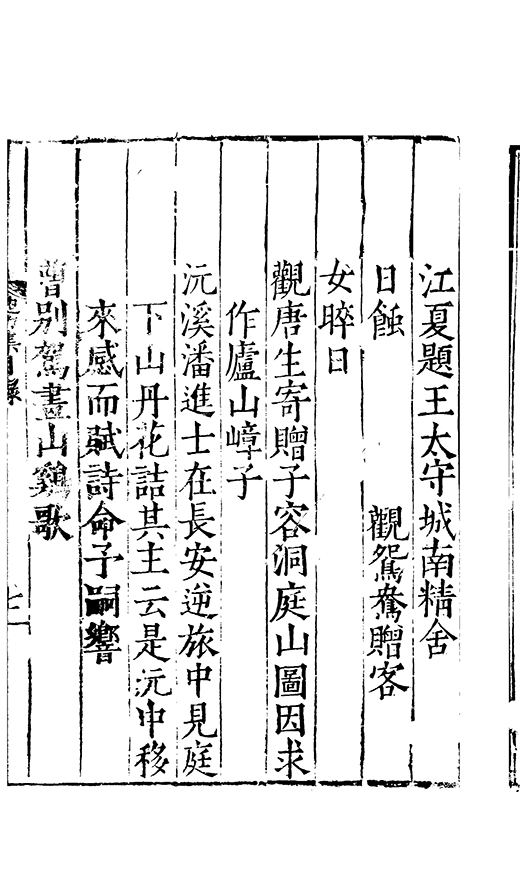 江夏題王太守城南精舍
日蝕　觀鴛鴦贈客
女晬日
觀唐生寄贈子容洞庭山圖因求
作廬山嶂子
沅溪潘進士在長安逆旅中見庭
下山丹花詰其主云是沅中移
來感而賦詩命予嗣響
曾別駕畫山鷄歌
集目錄